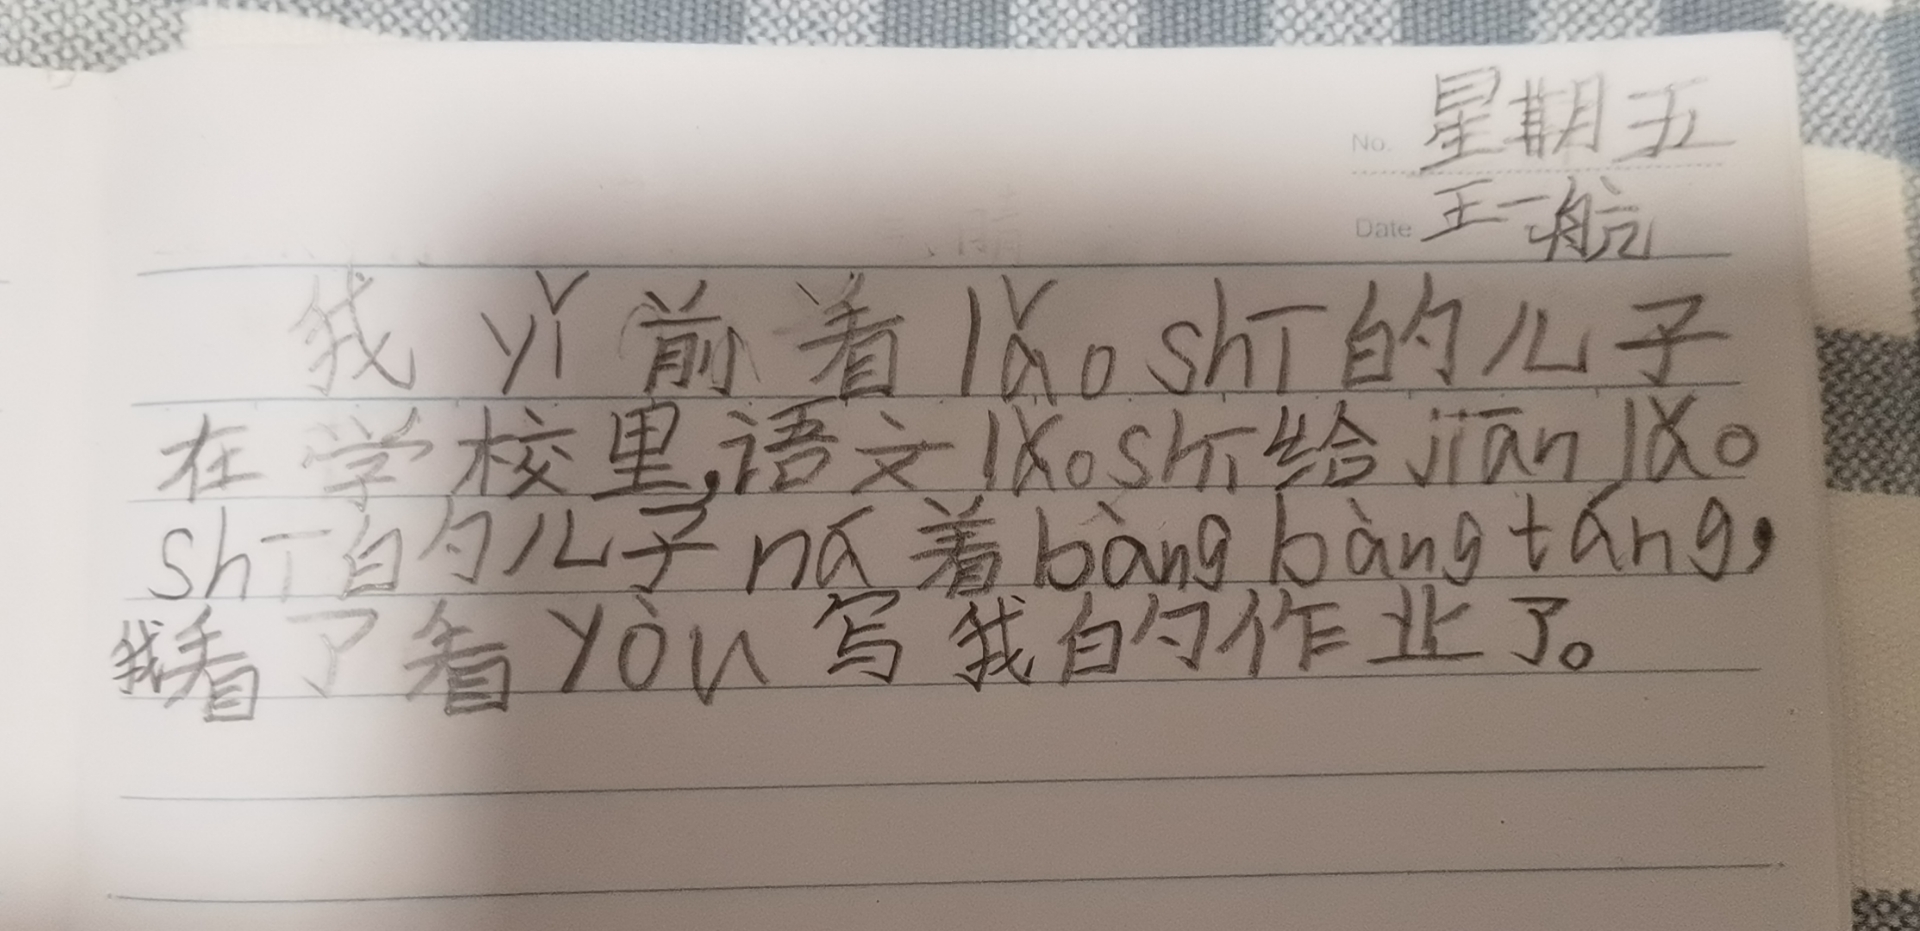 No. 星期五
Date 王一航
我 yǐ 前看 lǎo shī 的儿子
在学校里,语文 lǎo shī 给 jiān lǎo
shī 的儿子 ná 着 bàng bàng táng,
我看了看 yòu 写我的作业了。